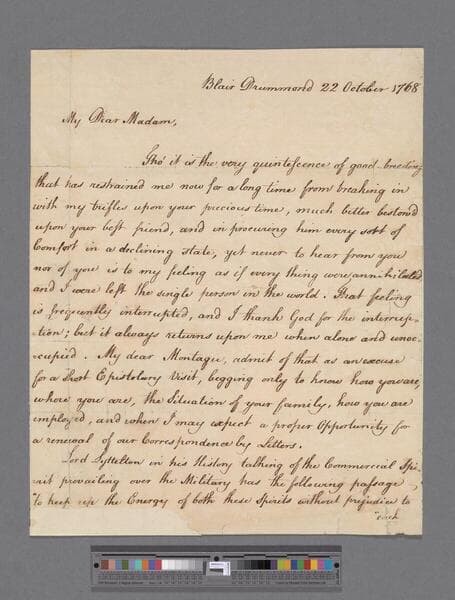 Blair Drummond 22 October 1768
My Dear Madam,
Tho' it is the very quintescence of good-breeding
that has restrained me now for a long time from breaking in
with my trifles upon your precious time, much better bestow'd
upon your best friend, and in procuring him every sort of
Comfort in a declining state, yet never to hear from you
nor of you is to my feling as if every thing were annihilated
and I were left the single person in the world. That feeling
is frequently interrupted, and I thank God for the interrup-
-tion; but it always returns upon me when alone and unoc-
cupied. My dear Montagu, admit of that as an excuse
for a short Epistolary Visit, begging only to know how you are,
where you are, the Situation of your family, how you are
employed, and when I may expect a proper Opportunity for
a renewal of our Correspondence by Letters.
Lord Lyttelton in his History talking of the Commercial Spi-
-rit prevailing over the Military has the following passage,
"To keep up the Energy of both these Spirits without prejudice to
"each